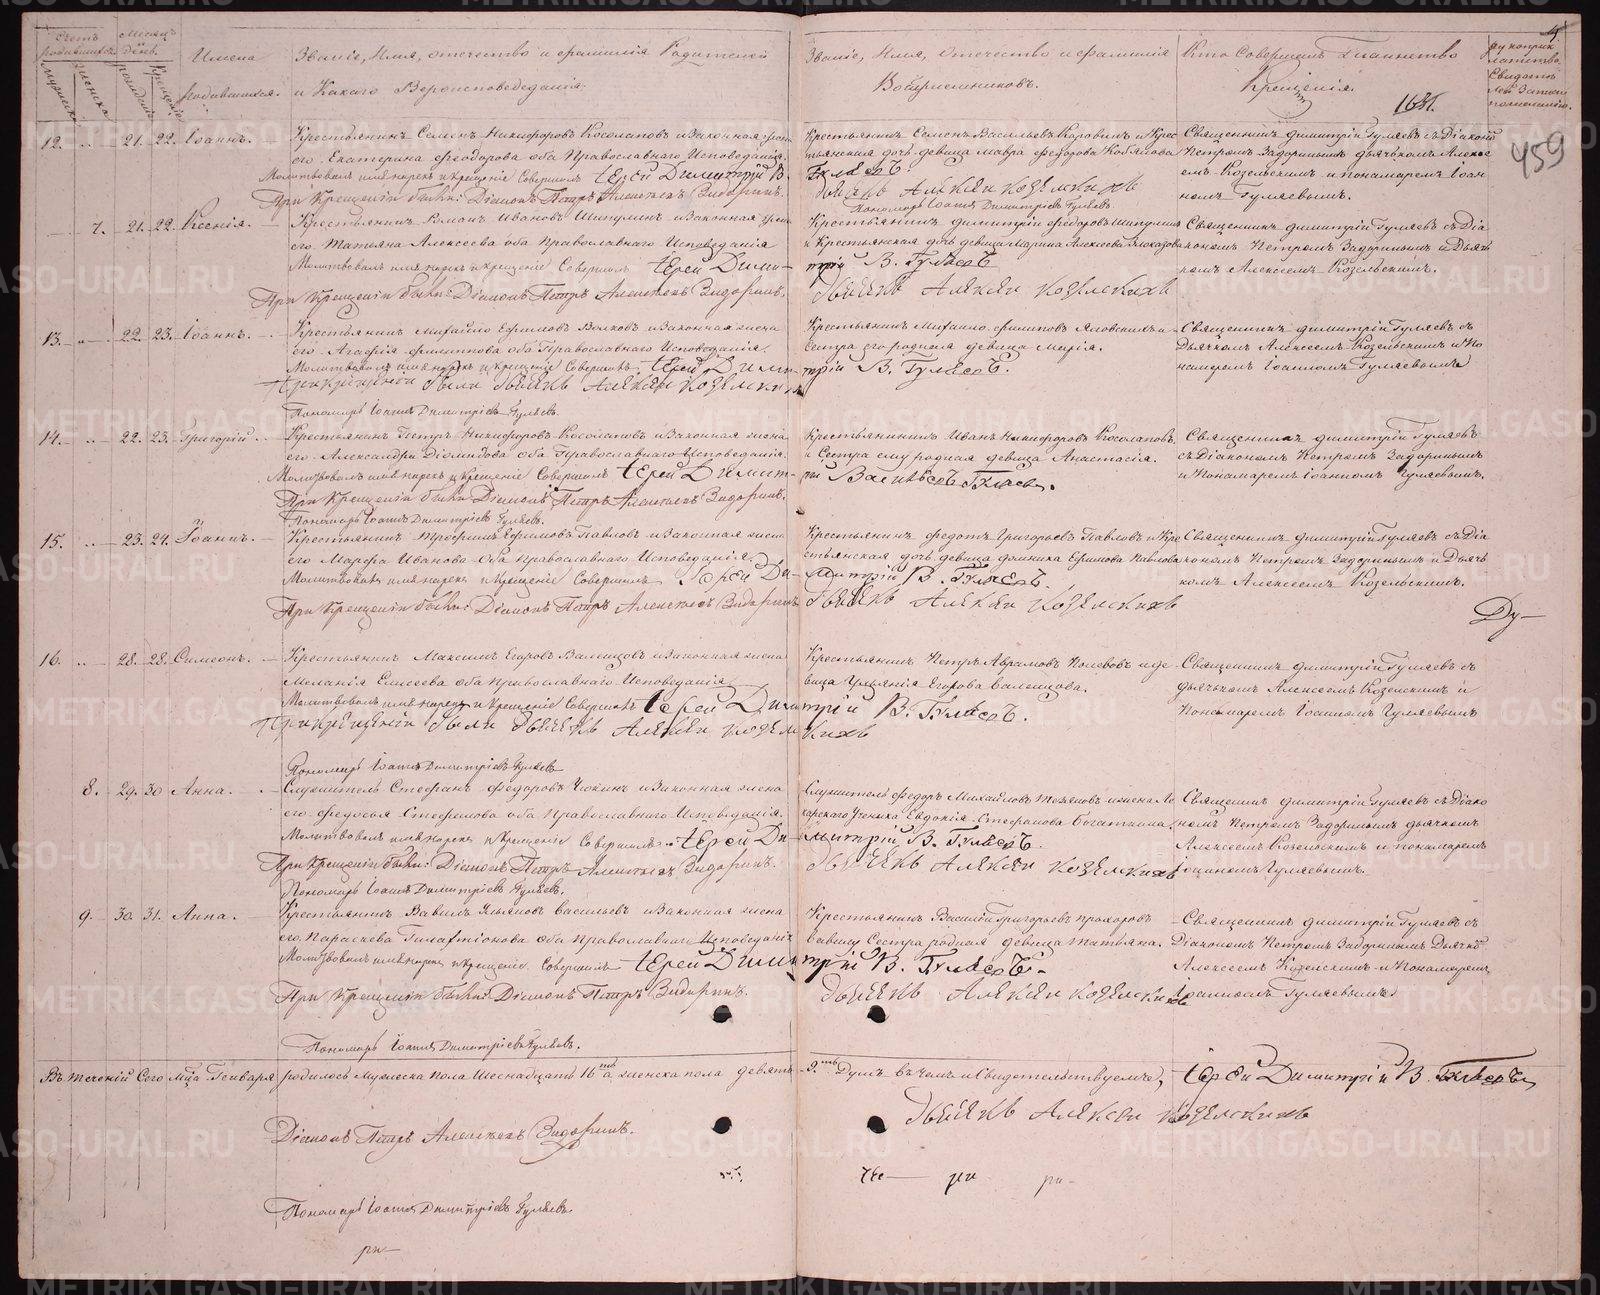 Счетъ родившихся.
Мужеска
Женска
Месяцъ и день.
рожденія
крещенія
Имена
родившихся.
Званіе, Имя, отечество и фамилія Родителей
и Какого Вероисповеданія.
Званіе, Имя, Отечество и фамилія
Воспріемниковъ.
Кто Совершалъ Таинство
Крещенія.
459
12. 21. 22. Іоаннъ.
Крестьянинъ Семенъ Никифоровъ Косолаповъ и Законная жена
его Екатерина Феодорова оба Православнаго Исповеданія.
Молитвовалъ имя нарекъ и крещеніе Совершилъ Іерей Димитрій В.
Гуляевъ.
При Крещеніи были: Діаконъ Петръ Алексеевъ Задоринъ.
Дьячекъ Алексей Козельскихъ
Пономарь Іоаннъ Димитріевъ Гуляевъ
Крестьянинъ Семенъ Васильевъ и Крес
тьянская дочь девица Мавра Федорова
Священникъ Димитрій Гуляевъ съ Діакономъ
Петромъ Задоринымъ дьячкомъ Алексе
емъ Козельскимъ и пономаремъ Іоан
номъ Гуляевымъ.
7. 21. 22. Ксенія.
Крестьянинъ Романъ Ивановъ Шипулинъ и Законная жена
его Татьяна Алексеева оба Православнаго Исповеданія
Молитвовалъ имя нарекъ и крещеніе Совершилъ Іерей Дими-
трій В. Гуляевъ
При Крещеніи были: Діаконъ Петръ Алексеевъ Задоринъ.
Дьячекъ Алексей Козельскихъ
Крестьянинъ Димитрій Федоровъ Шипулинъ
и Крестьянская дочь девица Марина Алексеева
Священникъ Димитрій Гуляевъ съ Діа
кономъ Петромъ Задоринымъ и Дьяч
комъ Алексеемъ Козельскимъ.
13. 22. 23. Іоаннъ.
Крестьянинъ Михайло Ефимовъ Волковъ и Законная жена
его Агафія Филиппова оба Православнаго Исповеданія.
Молитвовалъ имя нарекъ и крещеніе Совершилъ Іерей Дими-
трій В. Гуляевъ.
При крещеніи были Дьячекъ Алексей Козельскихъ
Пономарь Іоаннъ Димитріевъ Гуляевъ.
Крестьянинъ Михаило Филиповъ и
Сестра его родная девица Марія.
Священникъ Димитрій Гуляевъ съ
Дьячкомъ Алексеемъ Козельскимъ и По
номаремъ Іоанномъ Гуляевымъ
14. 22. 23. Григорій.
Крестьянинъ Петръ Никифоровъ Косолаповъ и Законная жена
его Александра Діомидова оба Православнаго Исповеданія.
Молитвовалъ имя нарекъ и крещеніе Совершилъ Іерей Димит-
рій Васильевъ Гуляевъ.
При Крещеніи были Діаконъ Петръ Алексеевъ Задоринъ.
Пономарь Іоаннъ Димитріевъ Гуляевъ.
Крестьянинъ Иванъ Никифоровъ Косолаповъ,
и Сестра ему родная девица Анастасія.
Священникъ Димитрій Гуляевъ
съ Діакономъ Петромъ Задоринымъ
и Пономаремъ Іоанномъ Гуляевымъ.
15. 23. 24. Іоаннъ.
Крестьянинъ Трофимъ Ефимовъ Павловъ и Законная жена
его Марфа Иванова оба Православнаго Исповеданія.
Молитвовалъ имя нарекъ и крещеніе Совершилъ Іерей Ди-
митрій В. Гуляевъ.
При Крещеніи были: Діаконъ Петръ Алексеевъ Задоринъ
Дьячекъ Алексей Козельскихъ
Крестьянинъ Федотъ Григорьевъ Павловъ и Кре
стьянская дочь девица Домника Ефимова Павлова
Священникъ Димитрій Гуляевъ съ Діа
кономъ Петромъ Задоринымъ и Дьяч
комъ Алексеемъ Козельскимъ.
Ду-
16. 28. 28. Симеонъ.
Крестьянинъ Максимъ Егоровъ Валенцовъ и Законная жена
Меланія Елисеева оба Православнаго Исповеданія
Молитвовалъ имя нарекъ и крещеніе Совершилъ Іерей Дими
трій В. Гуляевъ.
При крещеніи были Дьячекъ Алексей Козельскихъ
Пономарь Іоаннъ Димитріевъ Гуляевъ
Крестьянинъ Петръ Абрамовъ Полевовъ и де
вица Ульянія Егорова Валенцова.
Священникъ Димитрій Гуляевъ съ
дьячкомъ Алексеемъ Козельскимъ и
Пономаремъ Іоанномъ Гуляевымъ
8. 29. 30 Анна.
Служитель Стефанъ Федоровъ и Законная жена
его Федосья Стефанова оба Православнаго Исповеданія.
Молитвовалъ имя нарекъ и крещеніе Совершилъ Іерей Ди-
митрій В. Гуляевъ.
При Крещеніи были: Діаконъ Петръ Алексеевъ Задоринъ.
Дьячекъ Алексей Козельскихъ
Пономарь Іоаннъ Димитріевъ Гуляевъ.
Служитель Федоръ Михайловъ и жена Ле
карскаго Ученика Евдокія Стефанова
Священникъ Димитрій Гуляевъ съ Діако
номъ Петромъ Задоринымъ дьячкомъ
Алексеемъ Козельскимъ и пономаремъ
Іоанномъ Гуляевымъ.
9. 30. 31. Анна.
Крестьянинъ Вавилъ Ульяновъ Васильевъ и Законная жена
его Параскева оба Православнаго Исповеданія
Молитвовалъ имя нарекъ и крещеніе Совершилъ Іерей Дими
трій В. Гуляевъ.
При Крещеніи были: Діаконъ Петръ Задоринъ.
Дьячекъ Алексей Козельскихъ
Пономарь Іоаннъ Димитріевъ Гуляевъ.
Крестьянинъ Василій Григорьевъ Прохоровъ
Вавилу Сестра родная девица Татьяна.
Священникъ Димитрій Гуляевъ съ
Діакономъ Петромъ Задоринымъ Дьячко
Алексеемъ Козельскимъ и Пономаремъ
Іоанномъ Гуляевымъ
Въ теченіи Сего Мца Генваря родилось Мужеска Пола Шестнадцать 16ть а женска пола девять 9ть Душъ въ чемъ и Свидетельствуемъ, Іерей Димитрій В. Гуляевъ
Дьячекъ Алексей Козельскихъ
Діаконъ Петръ Алексеевъ Задоринъ.
Пономарь Іоаннъ Димитріевъ Гуляевъ.
METRIKI.GASO-URAL.RU